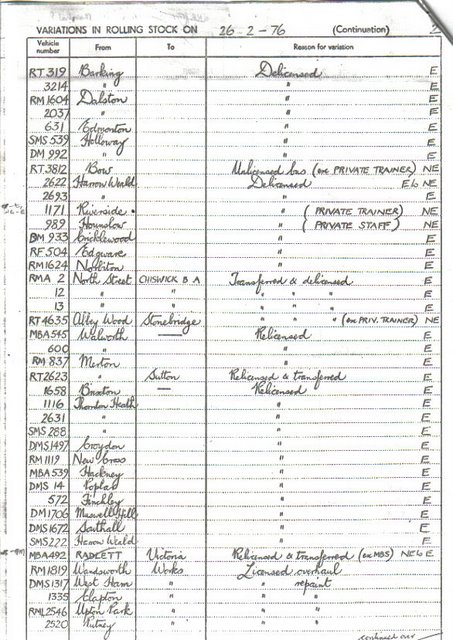 VARIATIONS IN ROLLING STOCK ON 26-2-76 (Continuation) 2
Vehicle number From To Reason for variation
RT 319 Barking Delicensed E
3214 " " E
RM 1604 Dalston " E
2037 " " E
631 Edmonton " E
SMS 539 Holloway " E
DM 992 " " E
RT 3812 Bow Unlicensed bus (one PRIVATE TRAINER) NE
2622 Harrow Weald Delicensed E to NE
2693 " " E
1171 Riverside " (PRIVATE TRAINER) NE
989 Hounslow " (PRIVATE STAFF) NE
BM 933 Cricklewood " E
RF 504 Edgware " E
RM 1624 Norbiton " E
RMA 2 North Street CHISWICK B A Transferred & delicensed E
12 " " " " " E
13 " " " " " E
RT 4635 Abbey Wood Stonebridge " " " (ex PRIV. TRAINER) NE
MBA 545 Walworth — Relicensed E
600 " " E
RM 837 Merton " E
RT 2623 " Sutton Relicensed & transferred E
1658 Brixton — Relicensed E
1116 Thornton Heath " E
2631 " " E
SMS 288 " " E
DMS 1497 Croydon " E
RM 1119 New Cross " E
MBA 539 Hackney " E
DMS 14 Poplar " E
572 Finchley " E
DM 1706 Muswell Hill " E
DMS 1672 Southall " E
SMS 222 Harrow Weald " E
MBA 492 RADLETT Victoria Relicensed & transferred (ex MBS) NE to E
RM 1819 Wandsworth Works Licensed overhaul
DMS 1317 West Ham " " repaint
1335 Clapton " " "
RML 2546 Upton Park " "
2520 Putney " "
continued over